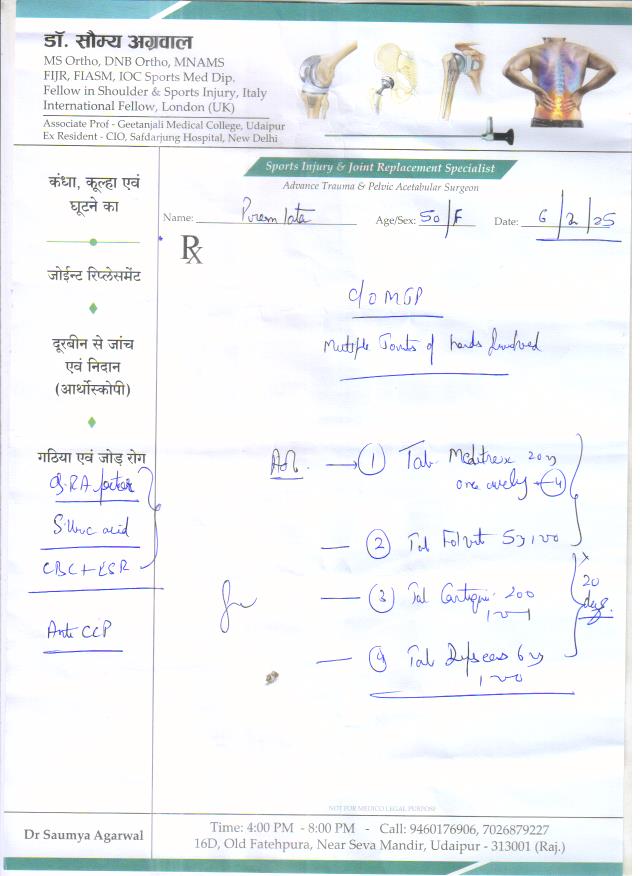 डॉ. सौम्य अग्रवाल
MS Ortho, DNB Ortho, MNAMS
FIJR, FIASM, IOC Sports Med Dip.
Fellow in Shoulder & Sports Injury, Italy
International Fellow, London (UK)
Associate Prof - Geetanjali Medical College, Udaipur
Ex Resident - CIO, Safdarjung Hospital, New Delhi
Sports Injury & Joint Replacement Specialist
Advance Trauma & Pelvic Acetabular Surgeon
Name: Prem lata Age/Sex: 50/F Date: 6/2/25
Rx
कंधा, कूल्हा एवं
घूटने का
जोईन्ट रिप्लेसमेंट
दूरबीन से जांच
एवं निदान
(आर्थोस्कोपी)
गठिया एवं जोड़ रोग
S. RA factor
S. Uric acid
CBC + ESR
Anti CCP
Multiple Joints of hands Involved
Adv. 1 Tab
one weekly 4
2 Tab Folvit 5
3 Tab 200
4 Tab 6
20
days
NOT FOR MEDICO LEGAL PURPOSE
Dr Saumya Agarwal
Time: 4:00 PM - 8:00 PM - Call: 9460176906, 7026879227
16D, Old Fatehpura, Near Seva Mandir, Udaipur - 313001 (Raj.)